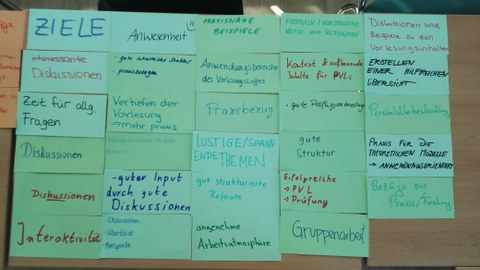 ZIELE
interessante
Diskussionen
Zeit für allg.
Fragen
Diskussionen
Diskussionen
Interaktivität
Anwesenheit
- gute
- praxisbezogen
Vertiefen der
Vorlesung
→ mehr praxis
- guter Input
durch gute
Diskussionen
Diskussionen
Überblick
Beispiele
PRAXISNAHE
BEISPIELE
Anwendungsbereiche
des Vorlesungsstoffes
Praxisbezug
LUSTIGE/SPANN-
ENDE THEMEN
gut strukturierte
Referate
angenehme
Arbeitsatmosphäre
Kontext & aufbauende
Inhalte für PVLs
- gute Prüfungsvorbereitung
gute
Struktur
Erfolgreiche
→ PVL
→ Prüfung
Gruppenarbeit
Diskussionen und
Beispiele zu den
Vorlesungsinhalten
ERSTELLEN
EINER HILFREICHEN
ÜBERSICHT
PRAXIS FÜR DIE
THEORETISCHEN MODELLE
→ ANWENDUNGSORIENTIERT
Bezüge zur
Praxis/Forschung